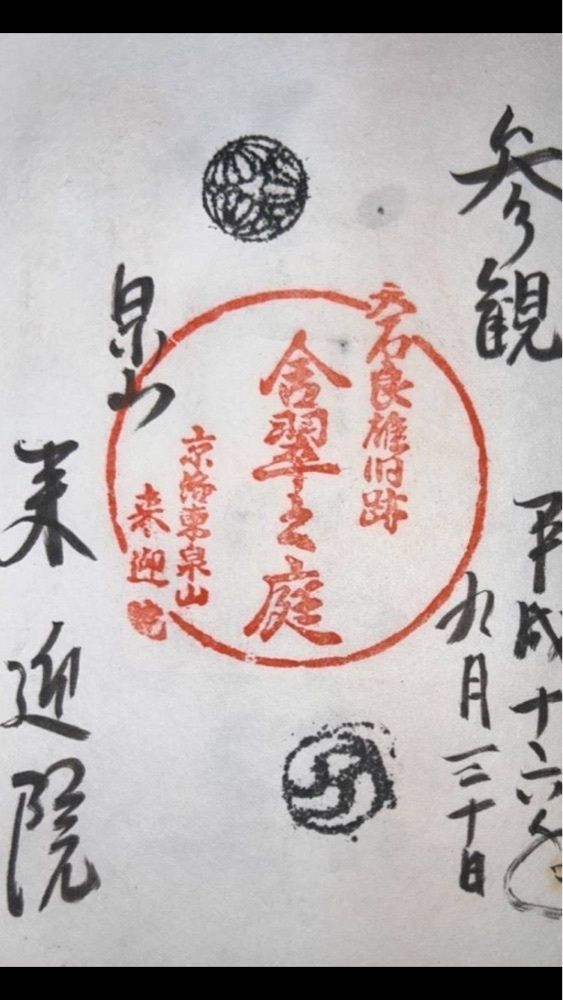 参観
平成十六年
九月三十日
大石良雄旧跡
含翠之庭
京洛東泉山
来迎院
泉山
来迎院